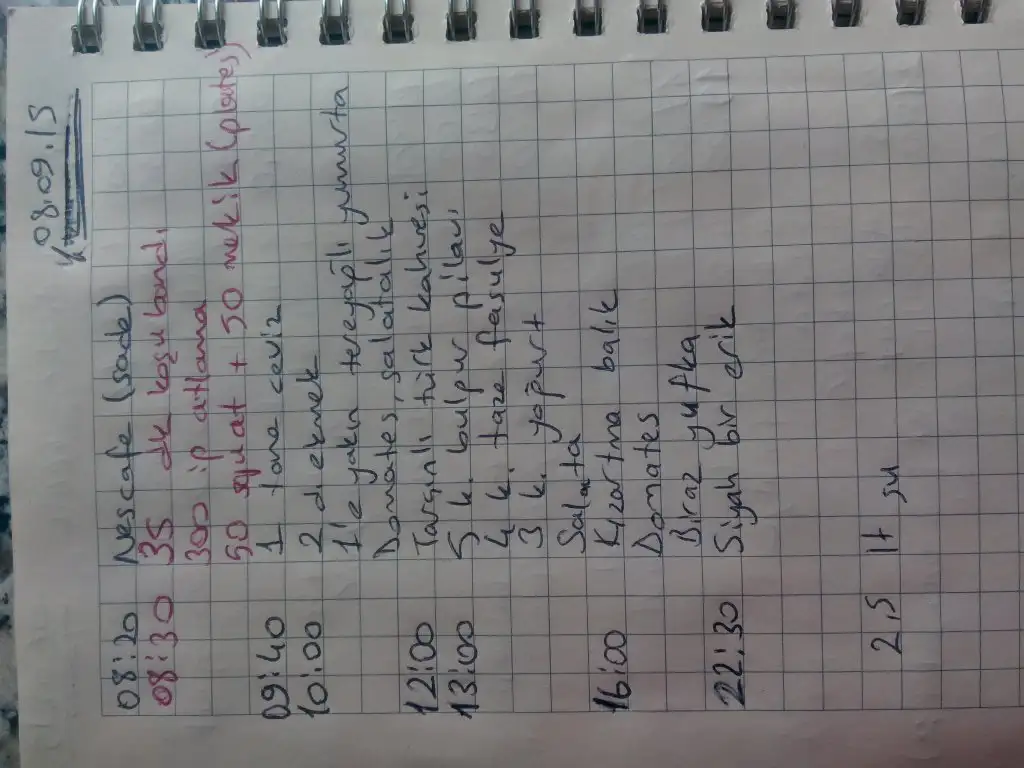 08.09.13
08:20 Nescafe (sade)
08:30 35 dk koşu bandı
300 ip atlama
50 squat + 50 mekik (plates)
09:40 1 tane ceviz
10:00 2 d ekmek
1'e yakın tereyağlı yumurta
Domates, salatalık
12:00 Tarçınlı türk kahvesi
13:00 5 k. bulgur pilavı
4 k. taze fasulye
3 k. yoğurt
Salata
16:00 Kızartma balık
Domates
Biraz yufka
22:30 Siyah bir erik
2,5 lt su